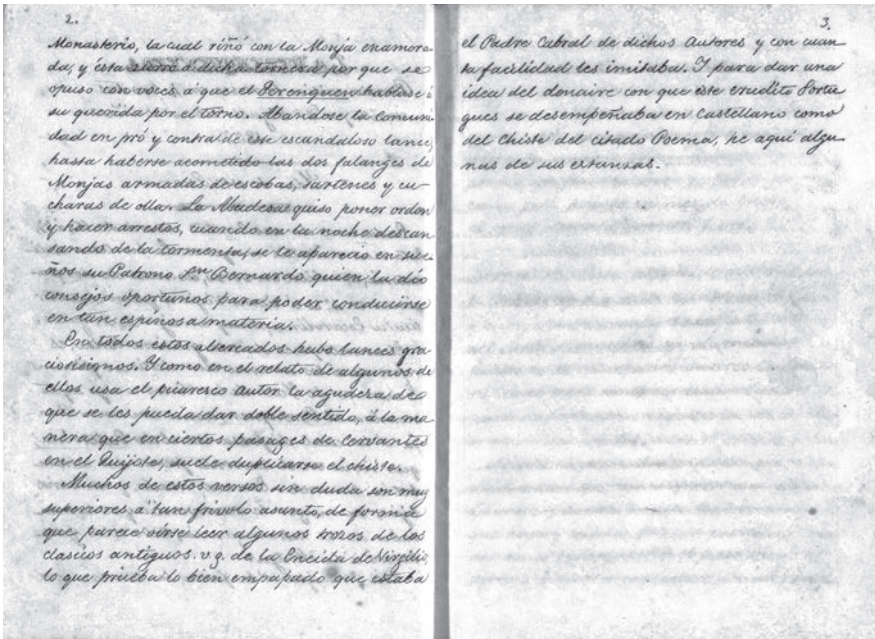 2.
Monasterio, la cual riñó con la Monja enamora-
da, y ésta zurró a dicha tornera por que se
opuso con voces a que el Perenquen hablase á
su querida por el torno. Abandose la Comuni-
dad en pró y contra de este escandaloso lance,
hasta haberse acometido las dos falanges de
Monjas armadas de escobas, sartenes y cu-
charas de olla. La Abadesa quiso poner orden
y hacer arrestos, cuando en la noche descan
sando de la tormenta, se le aparecio en sue-
ños su Patrono Sn Bernardo quien la dió
consejos oportunos para poder conducirse
en tan espinosa materia.
En todos estos altercados hubo lances gra
ciosisimos. Y como en el relato de algunos de
ellos usa el picaresco autor la agudeza de
que se les pueda dar doble sentido, á la ma
nera que en ciertos pasages de Cervantes
en el Quijote, suele duplicarse el chiste.
Muchos de estos versos sin duda son muy
superiores á tan frivolo asunto, de forma
que parece oirse leer algunos trozos de los
clasicos antiguos. v.g. de la Eneida de Virgilio,
lo que prueba lo bien empapado que estaba
3.
el Padre Cabral de dichos Autores y con cuan
ta facilidad les imitaba. Y para dar una
idea del donaire con que este erudito Portu
gues se desempeñaba en Castellano como
del chiste del citado Poema, he aqui algu
nas de sus estanzas.-